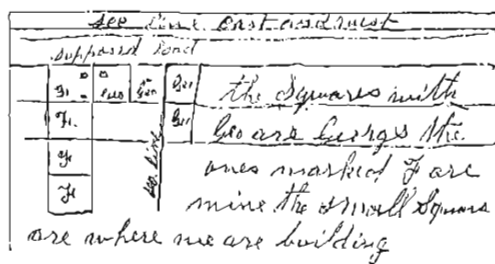 sec line east and west
supposed road
F. Geo Geo Geo the Squares with
F. Geo Geo are Georges the
F ones marked F are
F sec line mine the small Squares
are where we are building